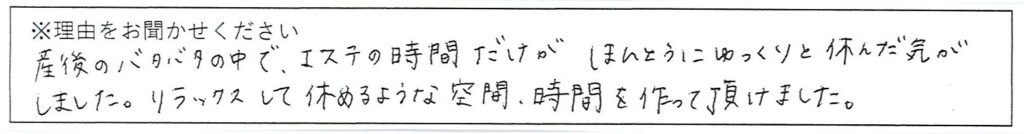 ※理由をお聞かせください
産後のバタバタの中で、エステの時間だけが ほんとうにゆっくりと休んだ気が
しました。リラックスして休めるような空間、時間を作って頂けました。